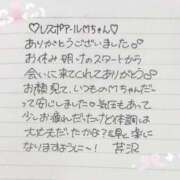 ♡レスポアールMちゃん♡
ありがとうございました
お休み明けのスタートから
会いに来てくれてありがとう
お顔見て、いつものMちゃんだ
って安心しました 気圧もあって
少しお疲れ気味だったけど体調は
大丈夫だったかな？早く楽に
なりますようにー！ 芹沢